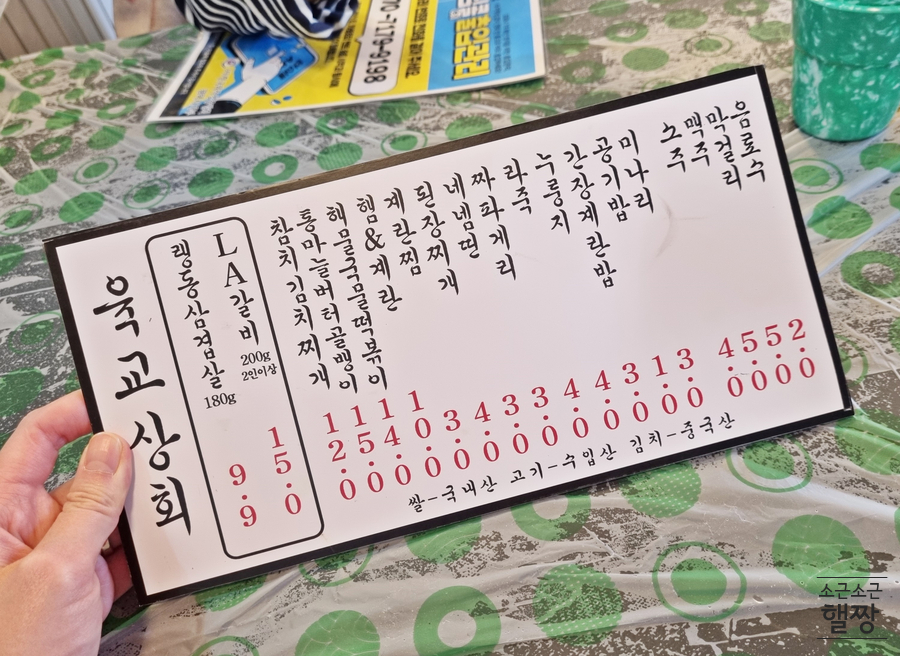 욱교상회
랭동삼겹살 180g 9.9
LA갈비 200g 2인이상 15.0
참치김치찌개 12.0
통마늘버터골뱅이 15.0
해물국물떡볶이 14.0
햄&계란 10.0
계란찜 3.0
된장찌개 4.0
네넴띤 3.0
짜파게리 3.0
라죽 4.0
누룽지 4.0
간장계란밥 3.0
공기밥 1.0
미나리 3.0
소주 4.0
맥주 5.0
막걸리 5.0
음료수 2.0
쌀-국내산 고기-수입산 김치-중국산
소근소근
핼짱